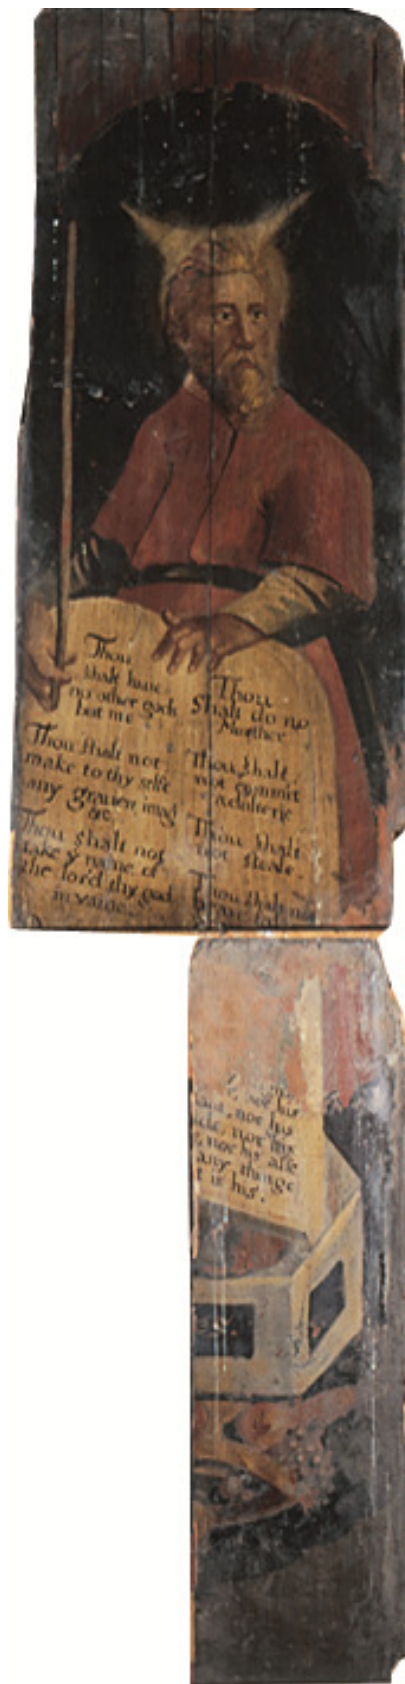 Thou
shalt haue
no other gods
but me
Thou shalt not
make to thy selfe
any grauen imag
&c.
Thou shalt not
take y name of
the lord thy god
in vaine.
Thou
Shalt do no
Murther
Thou shalt
not commit
adulterie
Thou shalt
not steale.
Thou shalt no
nor his
nor his
not his
nor his asse
any thinge
t is his.